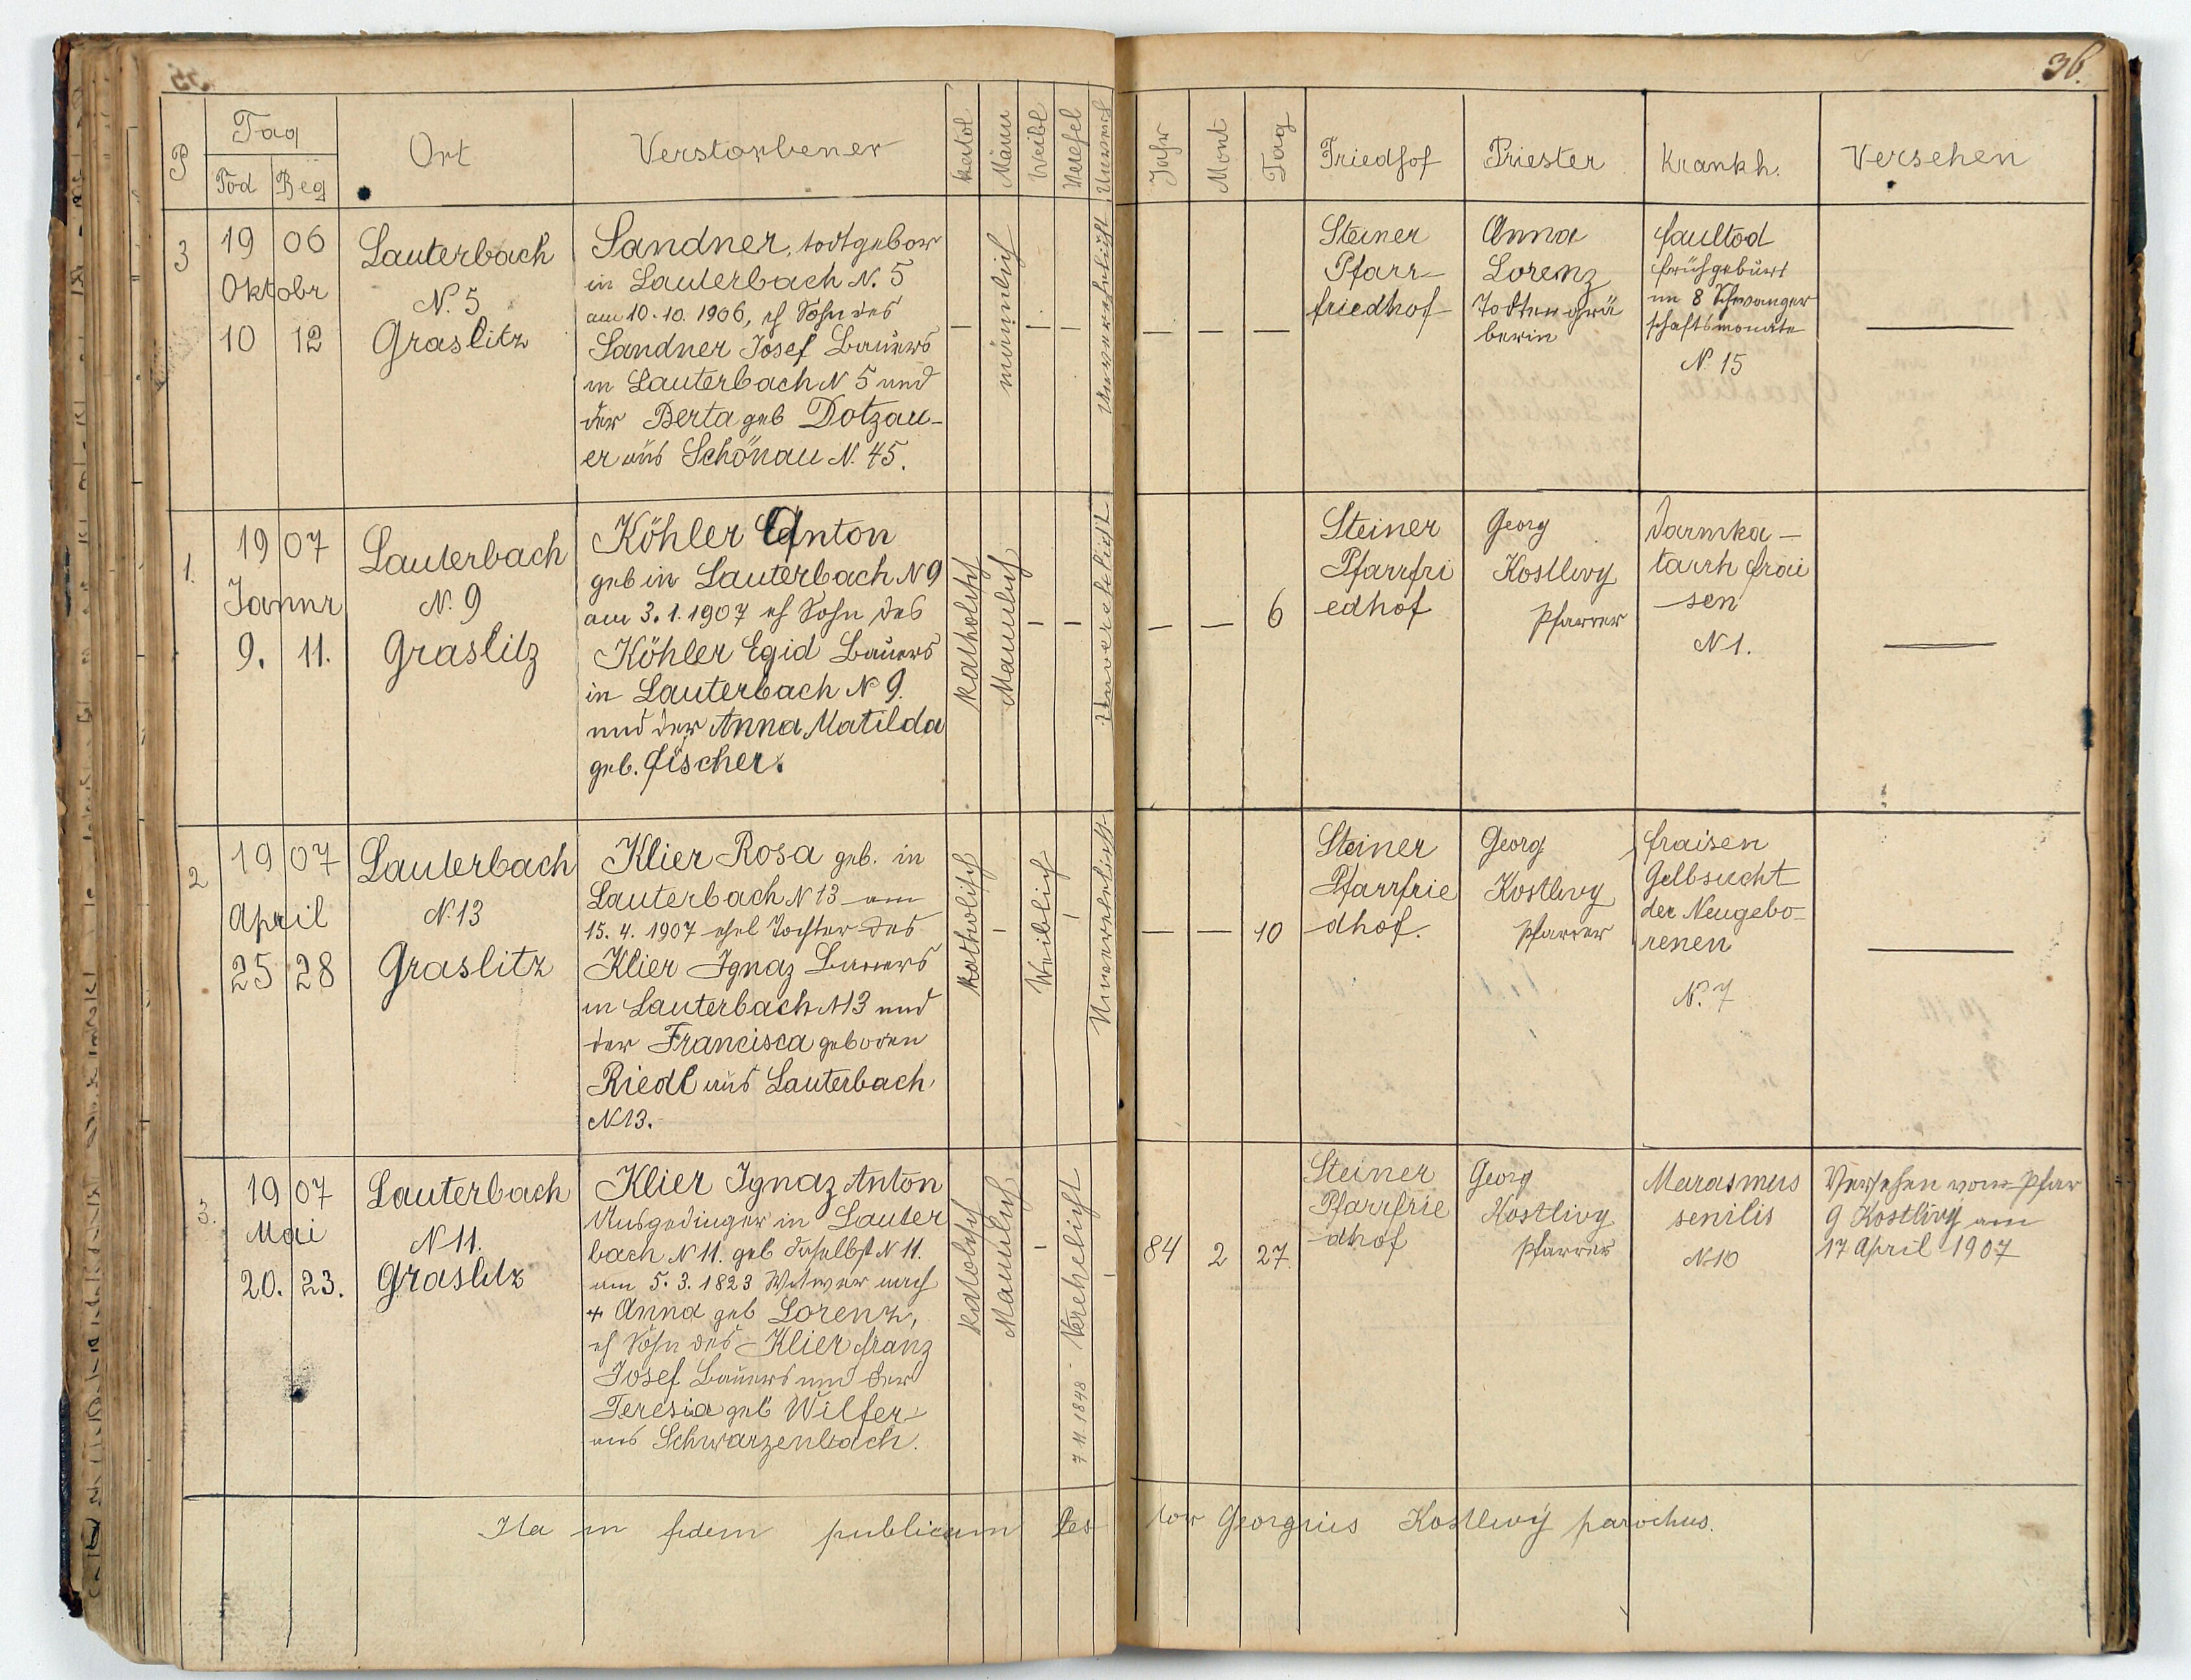 36.
P
Tag
Tod
Beg
Ort
Verstorbener
Katol
Männ
Weibl
Verehel
Unvereh
Jahr
Mont
Tag
Friedhof
Priester
Krankh.
Versehen
3
19 06
Oktobr
10 12
Lauterbach
N. 5
Graslitz
Sandner, todtgebor
in Lauterbach N. 5
am 10. 10. 1906, eh Sohn des
Sandner Josef Bauers
in Lauterbach N 5 und
der Berta geb Dotzau-
er aus Schönau N. 45.
—
männlich
—
—
Unverehelicht
—
—
—
Steiner
Pfarr-
friedhof
Anna
Lorenz
Todtengrä
berin
faultod
frühgeburt
im 8 Schwanger
schaftsmonate
N. 15
—
1.
19 07
Jannr
9. 11.
Lauterbach
N. 9
Graslitz
Köhler Anton
geb in Lauterbach N 9
am 3. 1. 1907 eh Sohn des
Köhler Egid Bauers
in Lauterbach N 9.
und der Anna Matilda
geb. Fischer.
Katholisch
Mannlich
—
—
Unverehelicht
—
—
6
Steiner
Pfarrfri
edhof
Georg
Kostlivy
Pfarrer
Darmka-
tarrh frai
sen
N 1.
—
2
19 07
April
25 28
Lauterbach
N. 13
Graslitz
Klier Rosa geb. in
Lauterbach N 13 am
15. 4. 1907 ehel Tochter des
Klier Ignaz Bauers
in Lauterbach N 13 und
der Francisca geboren
Riedl aus Lauterbach
N 13.
Katholisch
—
Weiblich
—
Unverehelicht
—
—
10
Steiner
Pfarrfrie
dhof.
Georg
Kostlivy
Pfarrer
fraisen
Gelbsucht
der Neugebo-
renen
N. 7
—
3.
19 07
Mai
20. 23.
Lauterbach
N 11.
Graslitz
Klier Ignaz Anton
Ausgedinger in Lauter
bach N 11. geb daselbst N 11.
am 5. 3. 1823 Witwer nach
+ Anna geb Lorenz,
eh Sohn des Klier Franz
Josef Bauers und der
Teresia geb Wilfer
aus Schwarzenbach.
Katolisch
Mannlich
—
7 11. 1848 Verehelicht
—
84
2
27
Steiner
Pfarrfrie
dhof
Georg
Kostlivy
Pfarrer
Marasmus
senilis
N 10
Versehen vom Pfar
G Kostlivy am
17 April 1907
Ita in fidem publicam Pas tor Georgius Kostlivý parochus.